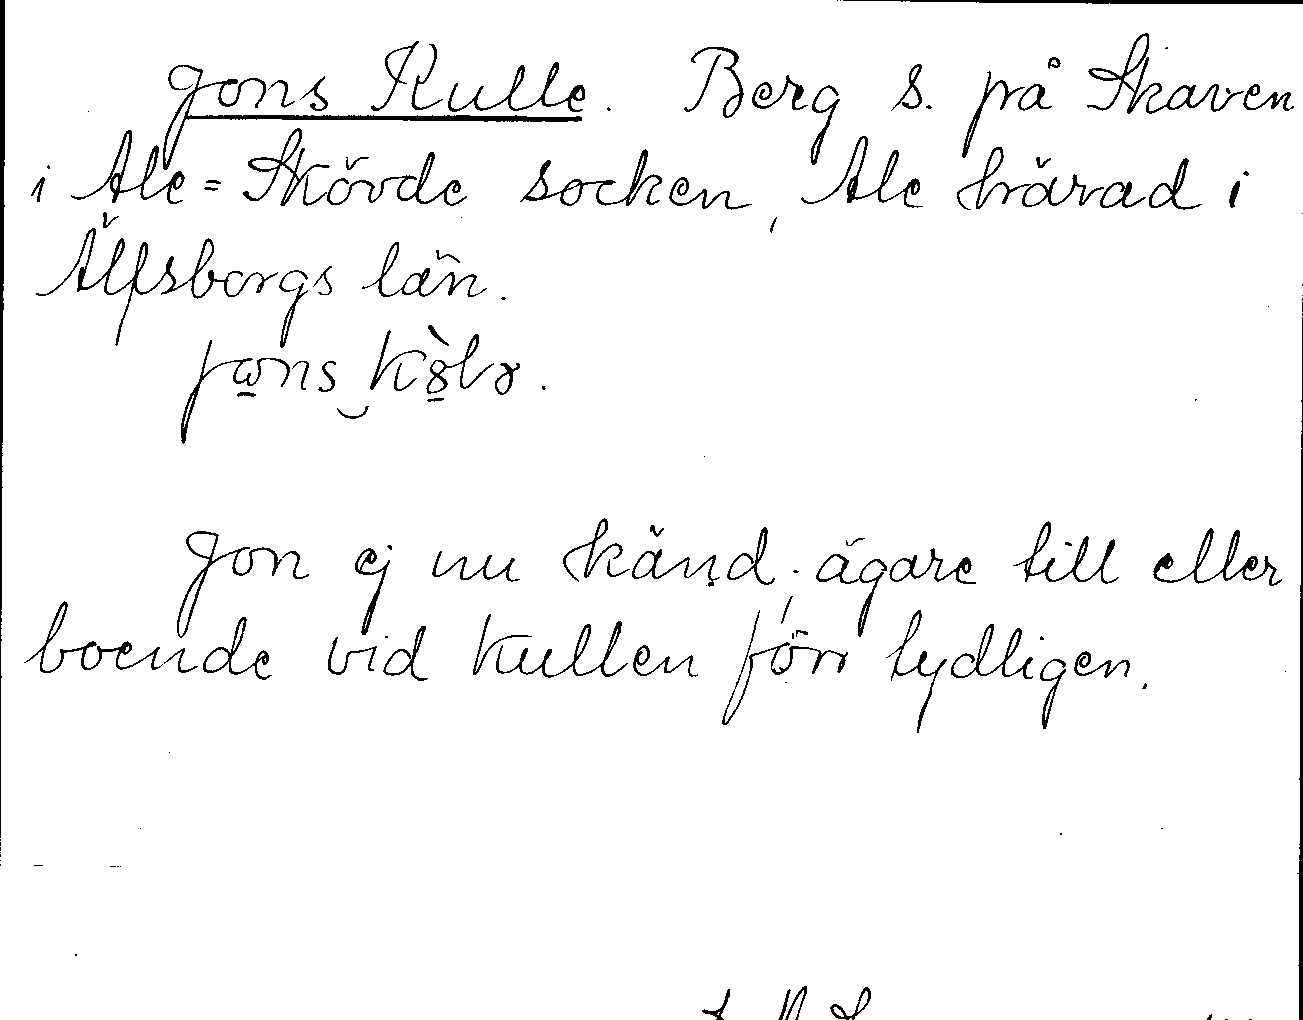 Jons Kulle. Berg s. på Skaven
i Ale=Skövde socken, Ale härad i
Älfsborgs län.
Jon ej nu känd; ägare till eller
boende vid kullen förr tydligen.